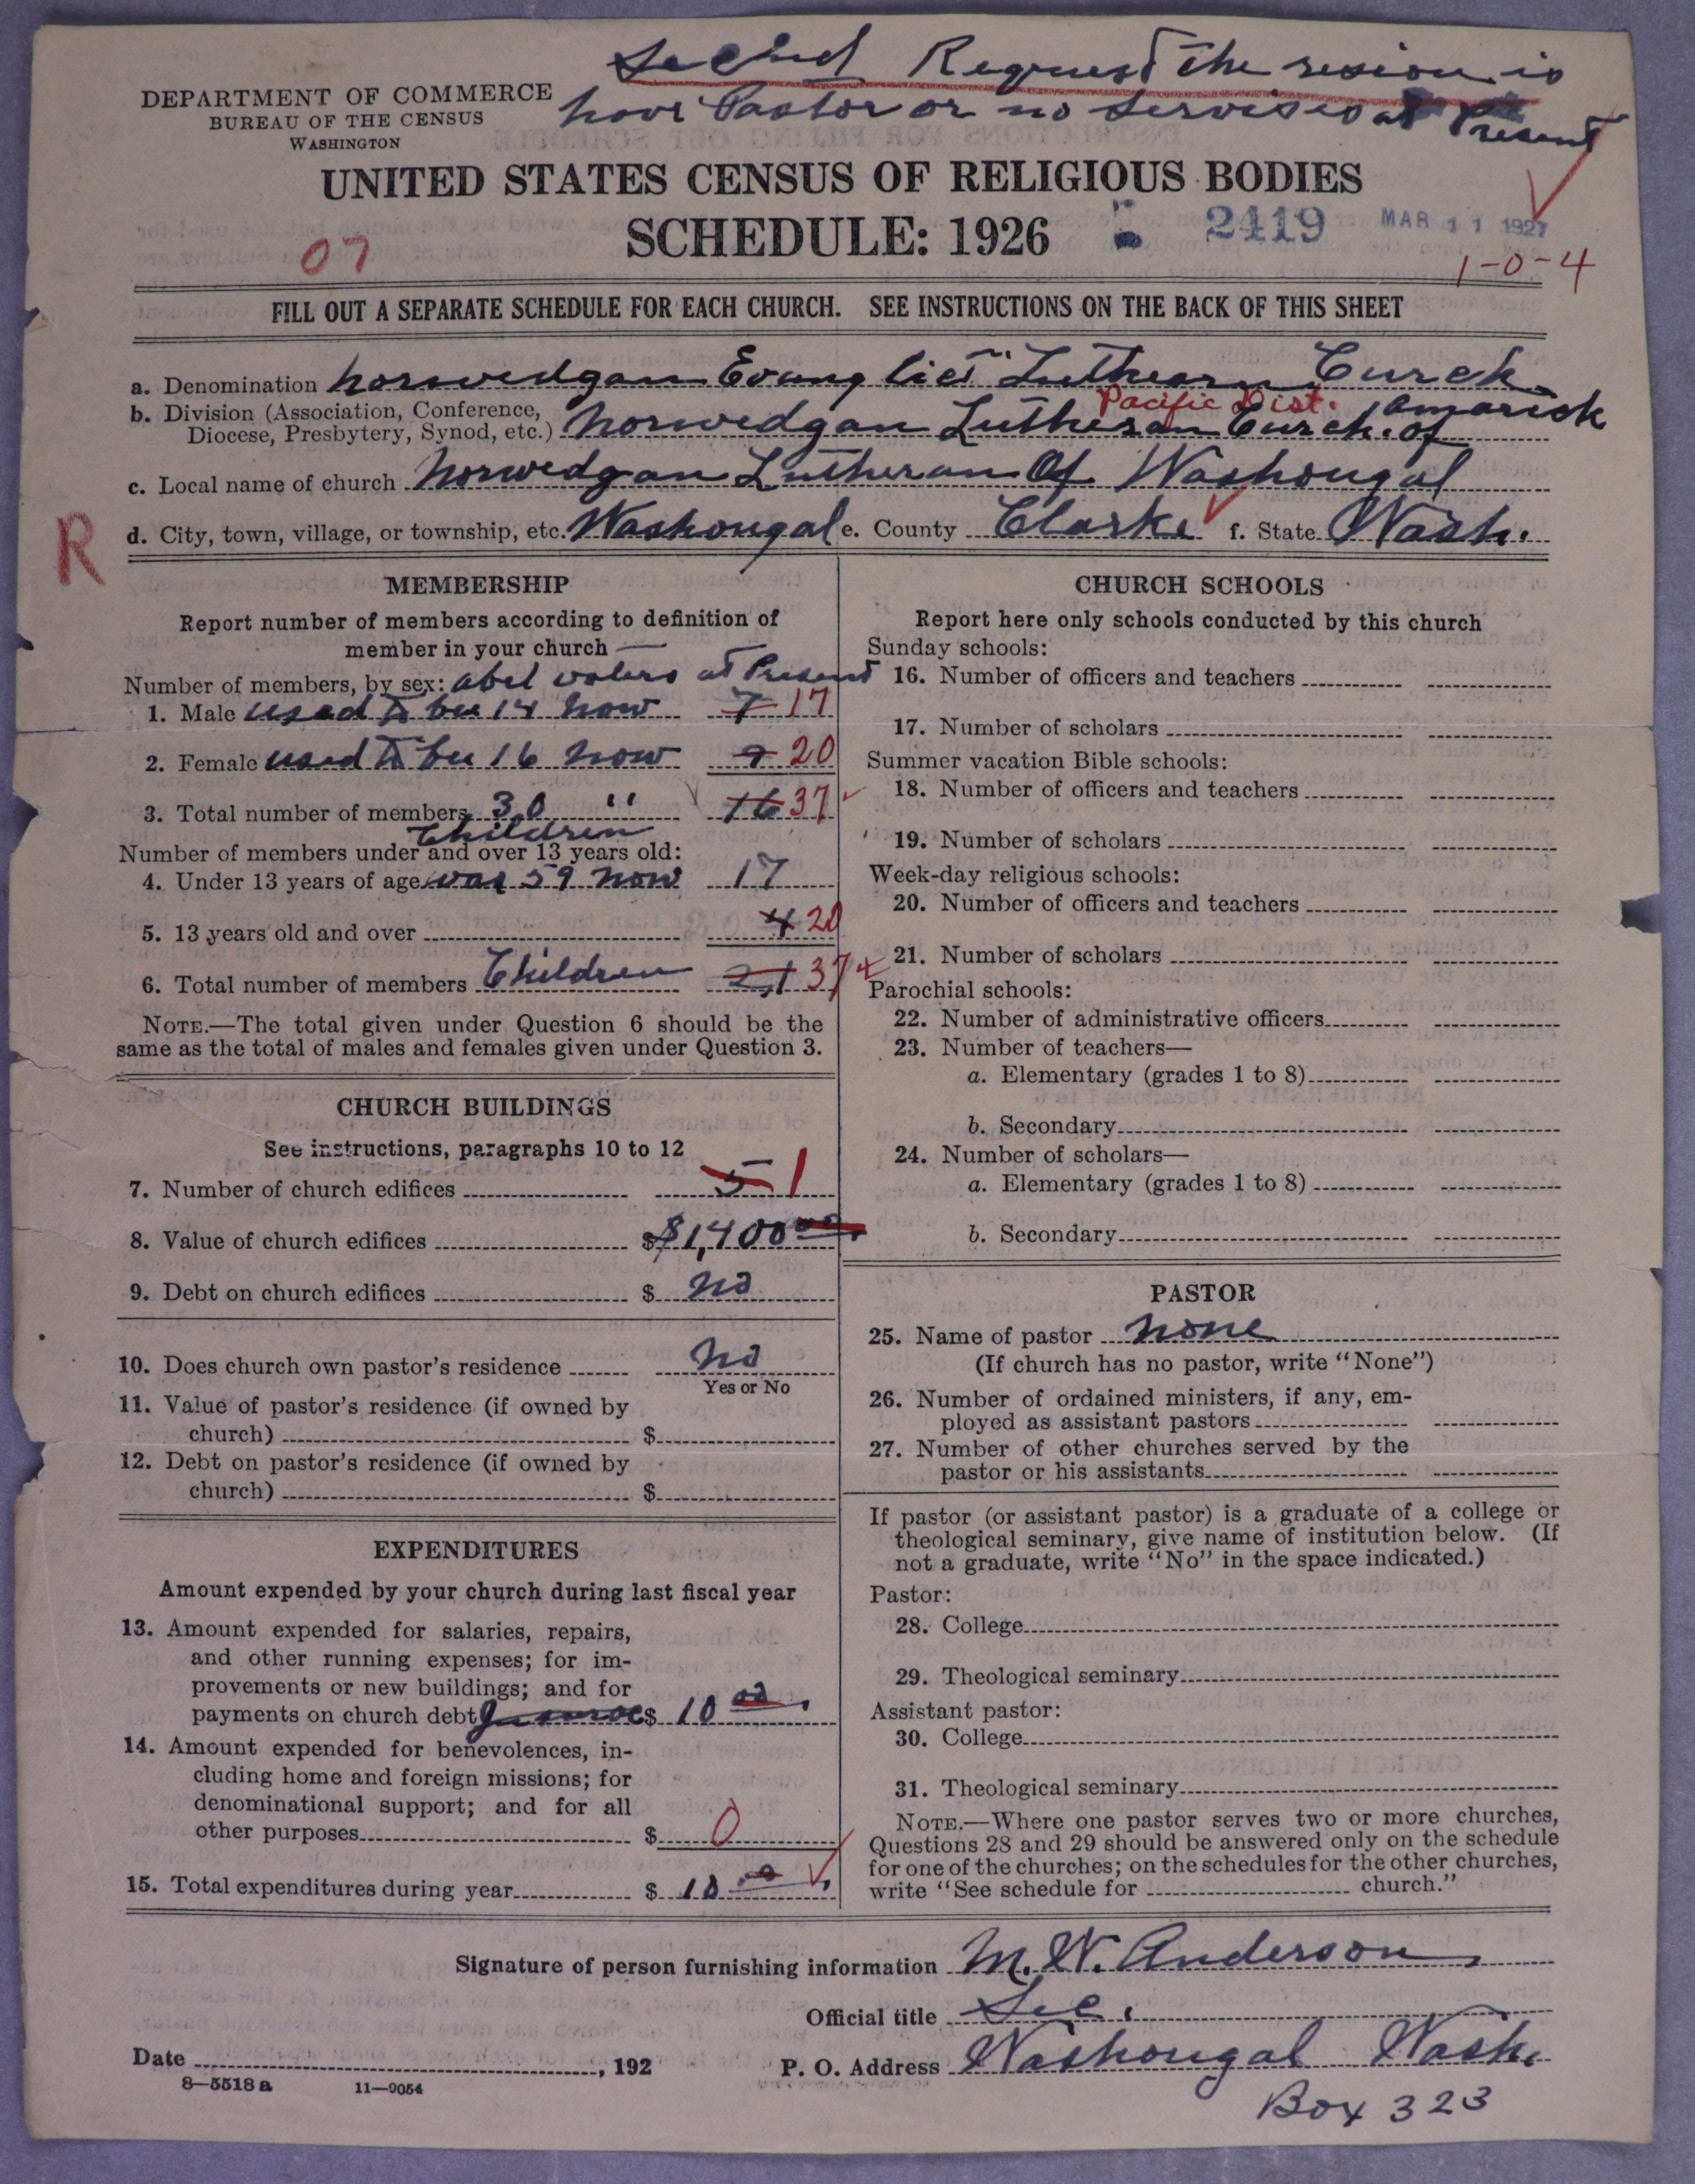 Second Request The resion is
have Pastor or no servises at Present
DEPARTMENT OF COMMERCE
BUREAU OF THE CENSUS
WASHINGTON
UNITED STATES CENSUS OF RELIGIOUS BODIES
SCHEDULE: 1926
2419
MAR 11 1927
07
1-0-4
FILL OUT A SEPARATE SCHEDULE FOR EACH CHURCH. SEE INSTRUCTIONS ON THE BACK OF THIS SHEET
a. Denomination Norwedgan Evang Luthearn Curch
Pacific Dist.
b. Division (Association, Conference,
Diocese, Presbytery, Synod, etc.) Norwedgan Lutheran Curch. of Amarick
c. Local name of church Norwedgan Lutheran Of Washougal
R
d. City, town, village, or township, etc. Washougal e. County Clarke f. State Wash.
MEMBERSHIP
Report number of members according to definition of
member in your church
Number of members, by sex: abel voters at Present
1. Male used to bee 14 now 7 17
2. Female used to bee 16 now 9 20
3. Total number of members 30 " 16 37
Children
Number of members under and over 13 years old:
4. Under 13 years of age was 59 now 17
5. 13 years old and over 4 20
6. Total number of members Children 21 37
NOTE.—The total given under Question 6 should be the
same as the total of males and females given under Question 3.
CHURCH BUILDINGS
See instructions, paragraphs 10 to 12
7. Number of church edifices 5 1
8. Value of church edifices $ $1,400 00
9. Debt on church edifices $ no
10. Does church own pastor's residence No
Yes or No
11. Value of pastor's residence (if owned by
church) $
12. Debt on pastor's residence (if owned by
church) $
EXPENDITURES
Amount expended by your church during last fiscal year
13. Amount expended for salaries, repairs,
and other running expenses; for im-
provements or new buildings; and for
payments on church debt $ 10 00
14. Amount expended for benevolences, in-
cluding home and foreign missions; for
denominational support; and for all
other purposes $ 0
15. Total expenditures during year $ 10 00
CHURCH SCHOOLS
Report here only schools conducted by this church
Sunday schools:
16. Number of officers and teachers
17. Number of scholars
Summer vacation Bible schools:
18. Number of officers and teachers
19. Number of scholars
Week-day religious schools:
20. Number of officers and teachers
21. Number of scholars
Parochial schools:
22. Number of administrative officers
23. Number of teachers—
a. Elementary (grades 1 to 8)
b. Secondary
24. Number of scholars—
a. Elementary (grades 1 to 8)
b. Secondary
PASTOR
25. Name of pastor none
(If church has no pastor, write "None")
26. Number of ordained ministers, if any, em-
ployed as assistant pastors
27. Number of other churches served by the
pastor or his assistants
If pastor (or assistant pastor) is a graduate of a college or
theological seminary, give name of institution below. (If
not a graduate, write "No" in the space indicated.)
Pastor:
28. College
29. Theological seminary
Assistant pastor:
30. College
31. Theological seminary
NOTE.—Where one pastor serves two or more churches,
Questions 28 and 29 should be answered only on the schedule
for one of the churches; on the schedules for the other churches,
write "See schedule for church."
Signature of person furnishing information M. W. Anderson
Official title Sec.
Date , 192
P. O. Address Washougal Wash.
8—5518 a 11—9054
Box 323